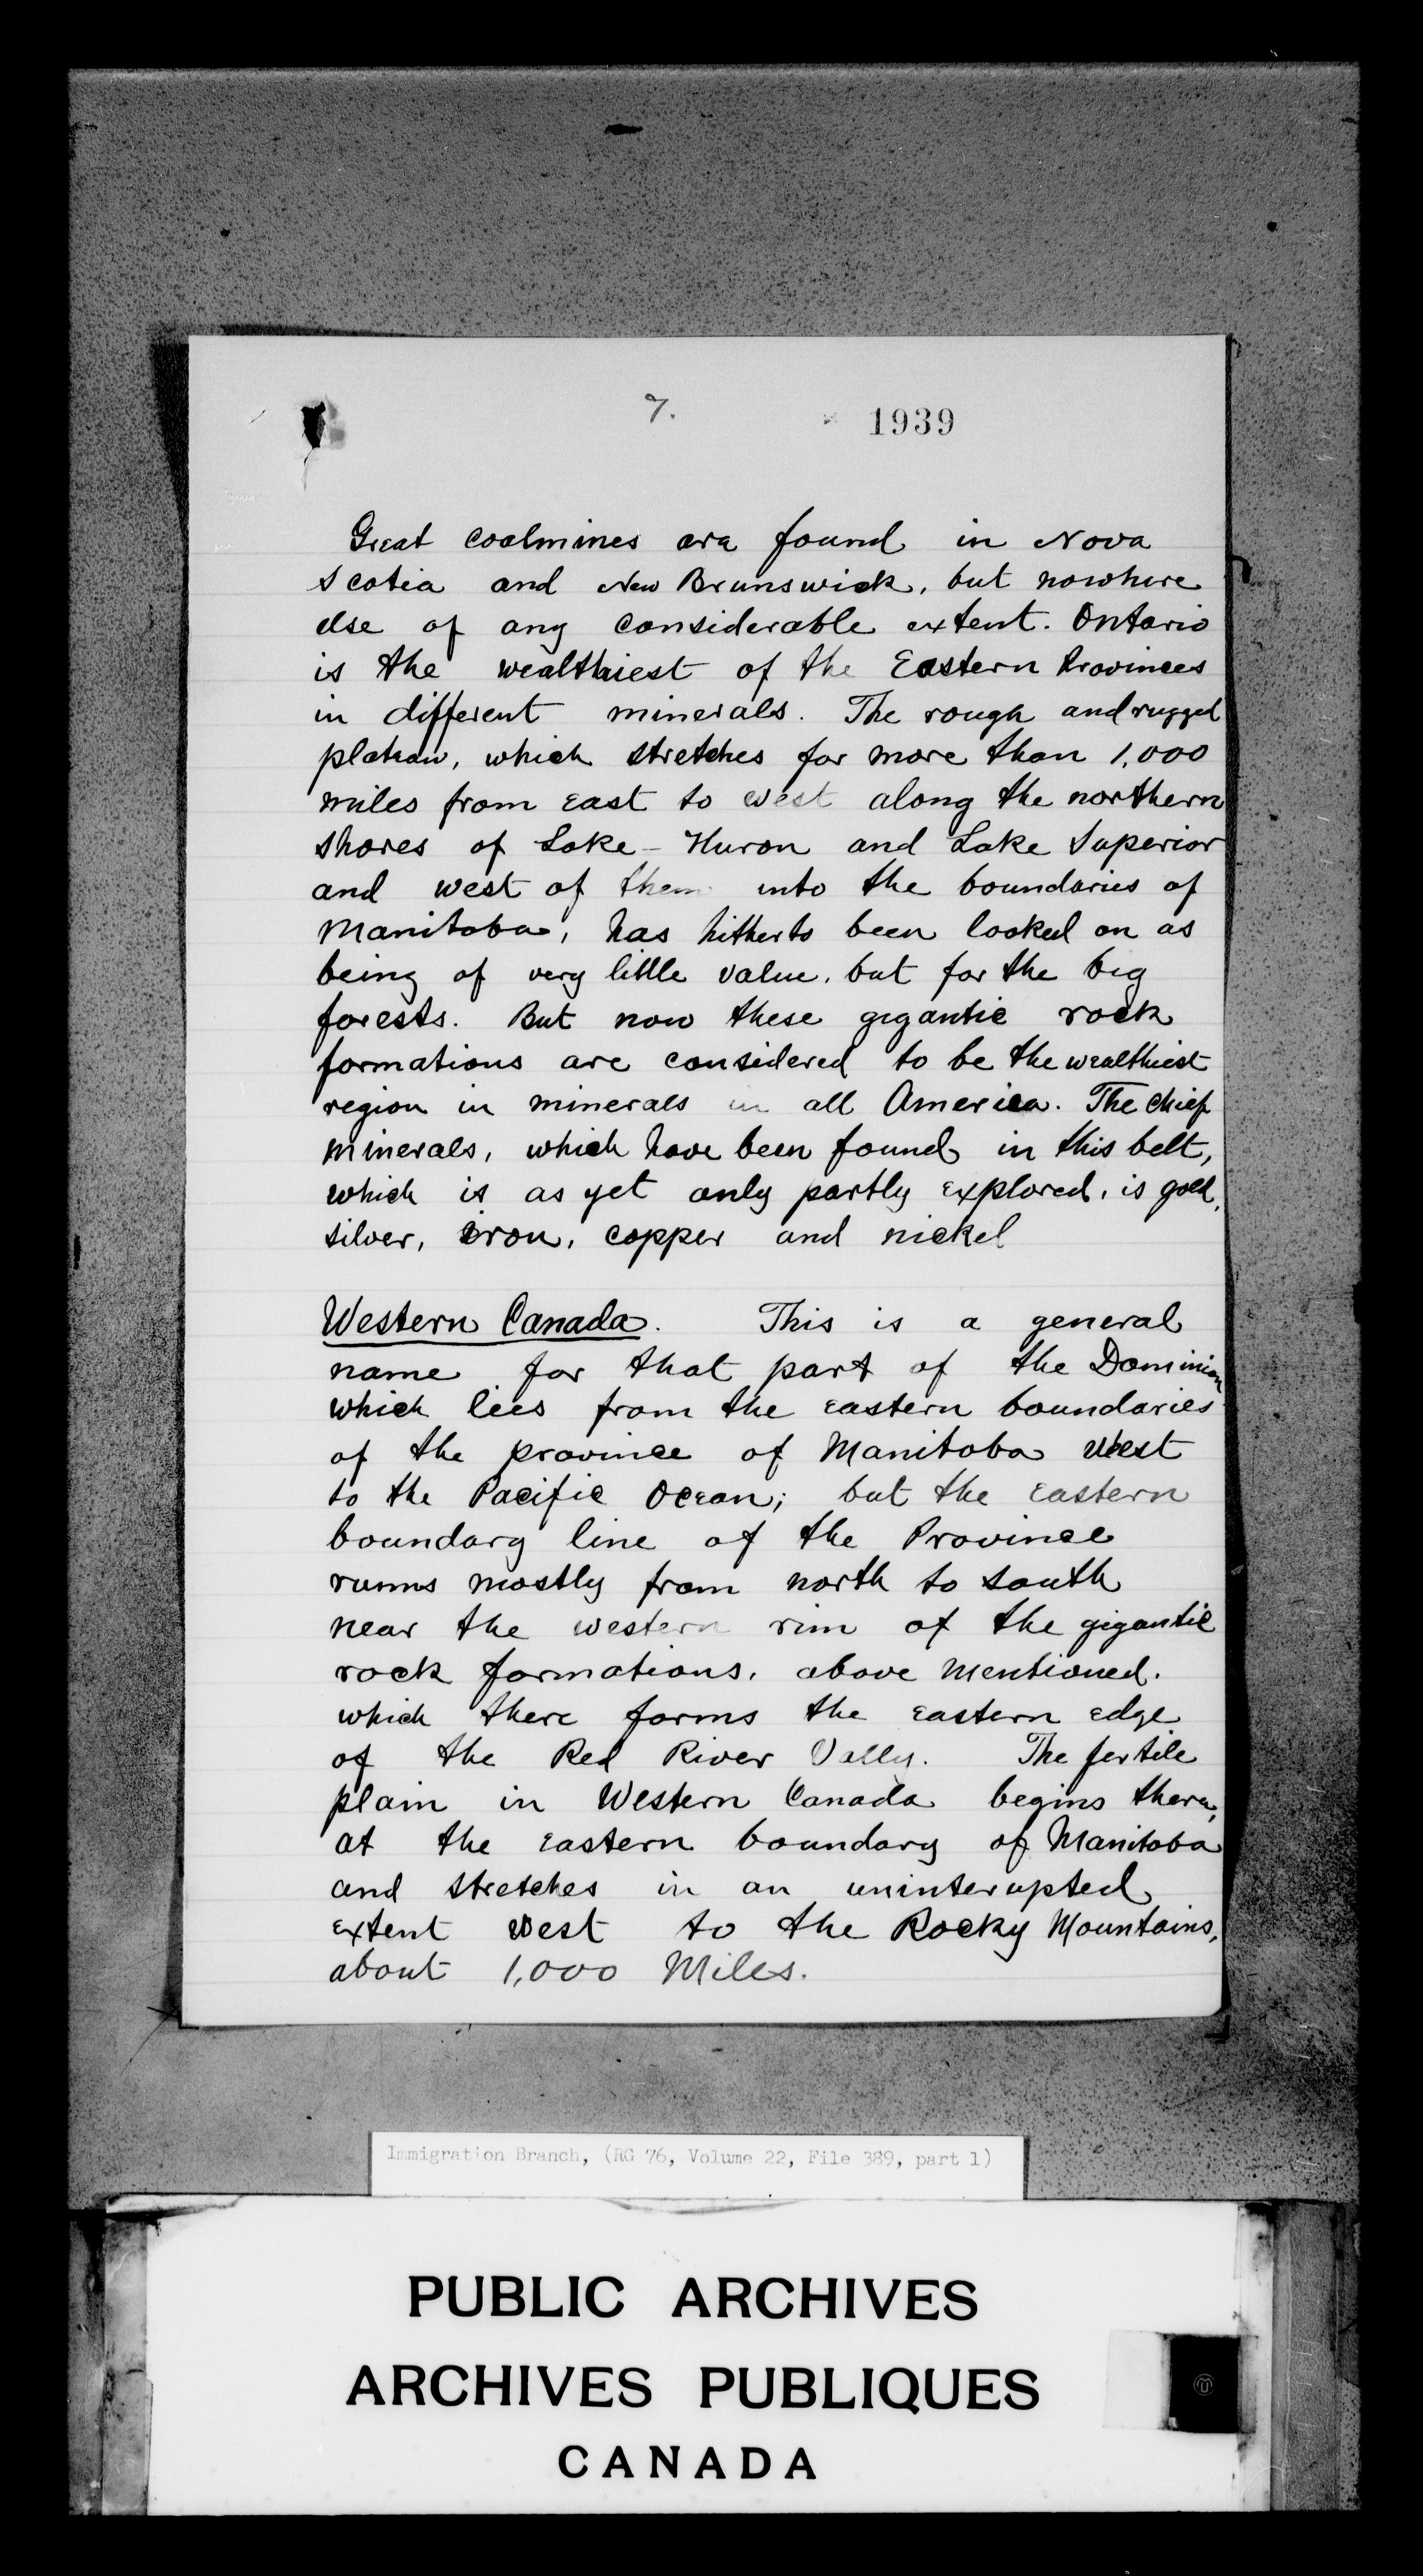 7.
1939
Great coalmines are found in Nova
Scotia and New Brunswick, but nowhere
else of any considerable extent. Ontario
is the wealthiest of the Eastern Provinces
in different minerals. The rough and rugged
plateau, which stretches for more than 1,000
miles from east to west along the northern
shores of Lake-Huron and Lake Superior
and west of them into the boundaries of
Manitoba, has hitherto been looked on as
being of very little value, but for the big
forests. But now these gigantic rock
formations are considered to be the wealthiest
region in minerals in all America. The chief
minerals, which have been found in this belt,
which is as yet only partly explored, is gold,
silver, iron, copper and nickel
Western Canada. This is a general
name for that part of the Dominion
which lies from the eastern boundaries
of the province of Manitoba west
to the Pacific Ocean; but the eastern
boundary line of the Province
runns mostly from north to south
near the western rim of the gigantic
rock formations, above mentioned.
which there forms the eastern edge
of the Red River Vally. The fertile
plain in Western Canada begins there,
at the eastern boundary of Manitoba
and stretches in an uninterupted
extent west to the Rocky Mountains,
about 1,000 Miles.
Immigration Branch, (RG 76, Volume 22, File 389, part 1)
PUBLIC ARCHIVES
ARCHIVES PUBLIQUES
CANADA